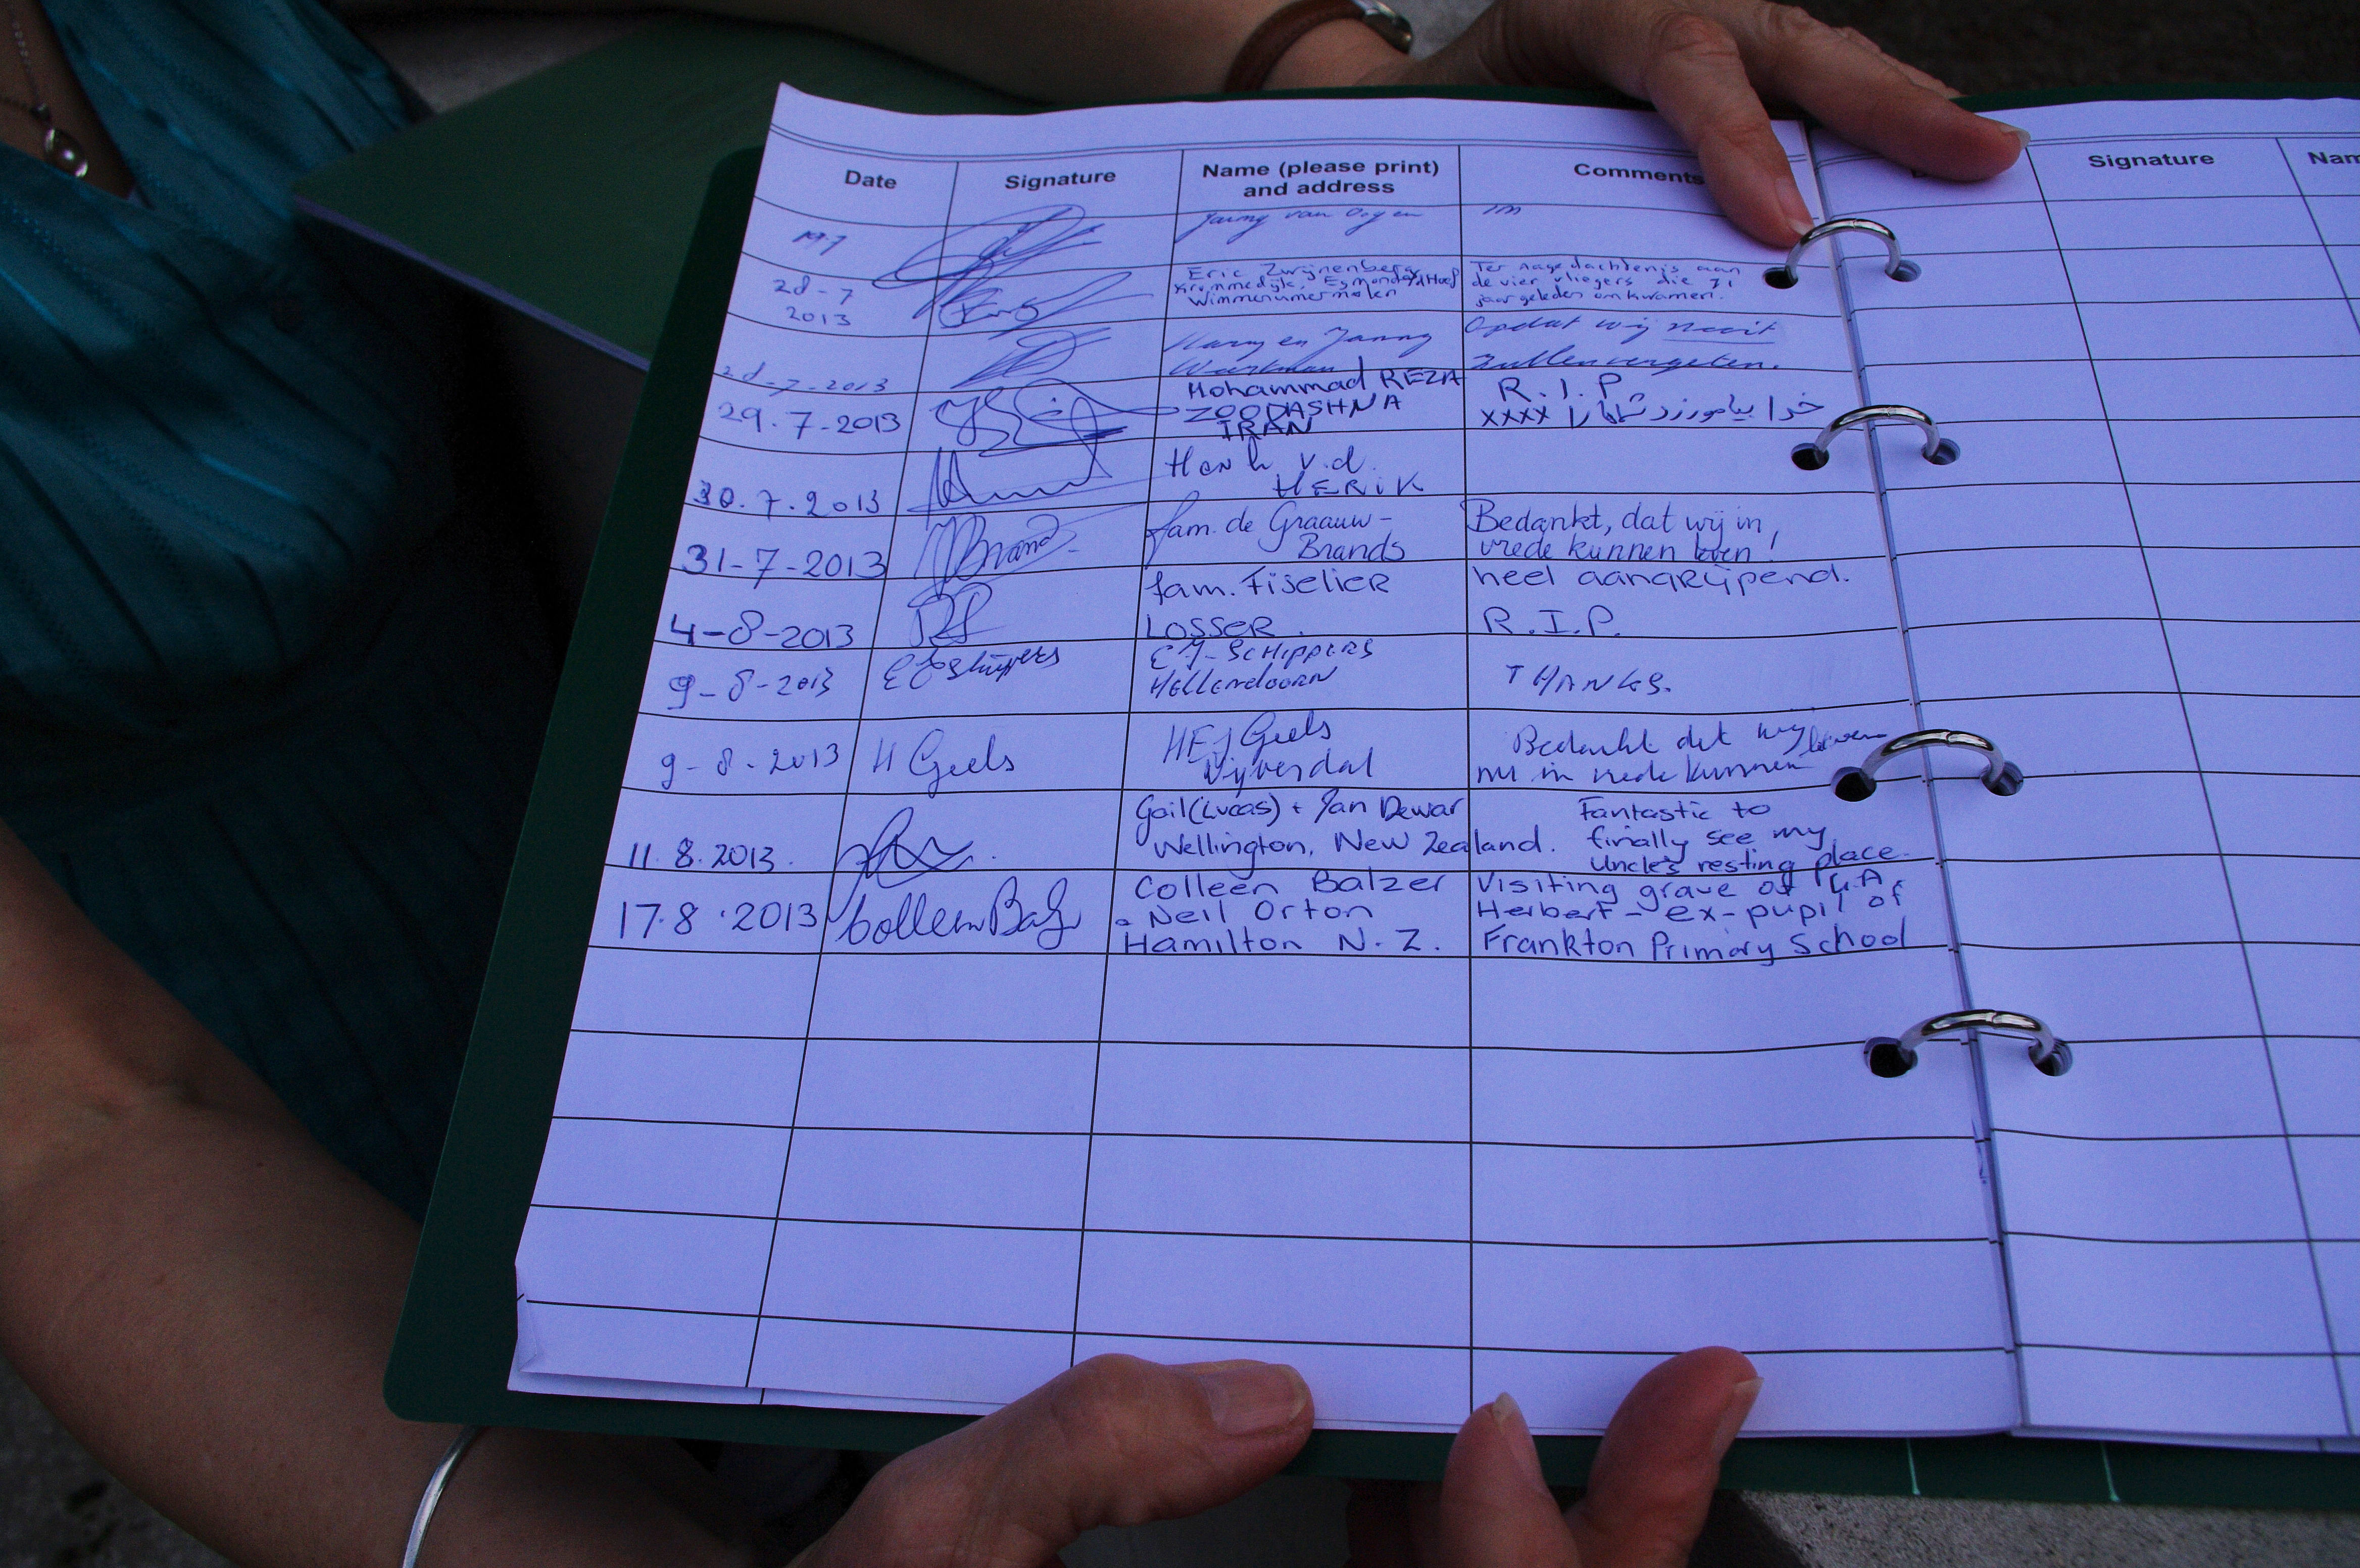 Date Signature Name (please print) and address Comments
19-7 Janny van
28-7 2013 Eric Zwijnenberg Ter nagedachtenis aan
Krommedijk, Egmond a/d Hoef de vier vliegers die 71
Wimmenumermolen jaar geleden omkwamen.
28-7-2013 Harry en Janny Opdat wij nooit
zullen vergeten.
29.7-2013 Mohammad REZA R.I.P
ZOODASHNA xxxx خدا بیامورزد شما را
IRAN
30.7.2013 Henk v.d.
HERIK
31-7-2013 Brand fam. de Graauw- Bedankt, dat wij in
Brands vrede kunnen leven!
4-8-2013 fam. Fiselier heel aangrijpend.
LOSSER. R.I.P.
9-8-2013 EJ Schippers EJ-SCHIPPERS THANKS.
Hellendoorn
9-8-2013 H Geels HEJ Geels Bedankt dat wij
Nijverdal nu in vrede kunnen leven
11.8.2013. Gail (Lucas) + Ian Dewar Fantastic to
Wellington, New Zealand. finally see my
Uncle's resting place.
17.8.2013 Colleen Balz Colleen Balzer Visiting grave of G.A.
& Neil Orton Herbert - ex-pupil of
Hamilton N.Z. Frankton Primary School
Signature
Nam